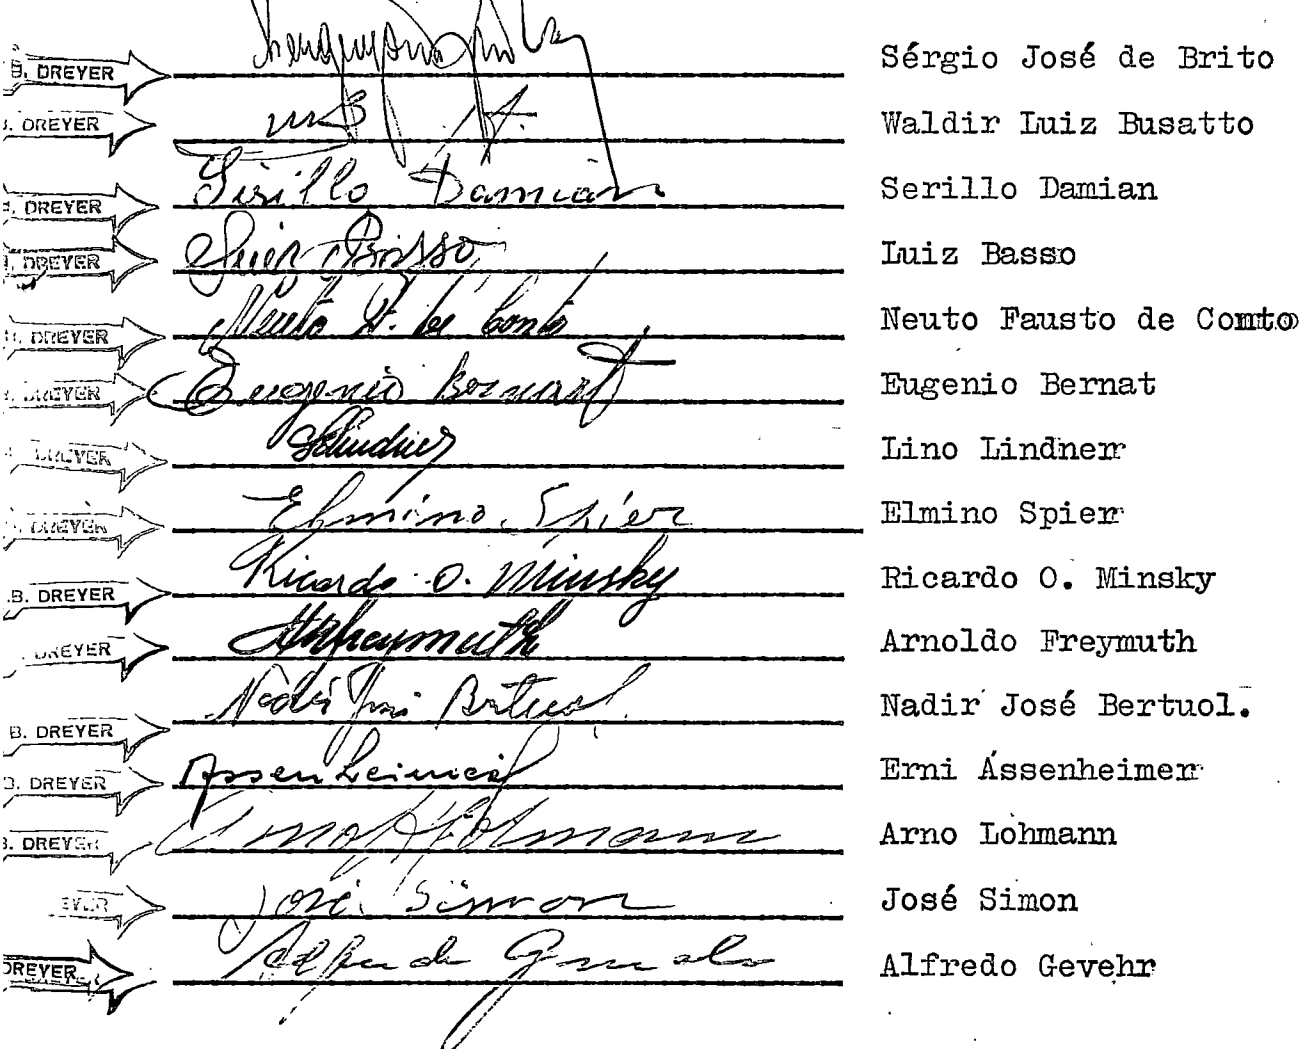 B. DREYER Sérgio José de Brito
. DREYER Waldir Luiz Busatto
. DREYER Sirillo Damian Serillo Damian
. DREYER Luiz Basso Luiz Basso
. DREYER Neuto F. de Conto Neuto Fausto de Conto
. DREYER Eugenio Bernart Eugenio Bernat
DREYER Lindner Lino Lindner
. DREYER Elmino Spier Elmino Spier
.B. DREYER Ricardo O. Minsky Ricardo O. Minsky
DREYER Freymuth Arnoldo Freymuth
B. DREYER Nadir José Bertuol Nadir José Bertuol.
B. DREYER Assenheimer Erni Assenheimer
B. DREYER Arno Lohmann
EYER José Simon José Simon
DREYER Alfredo Alfredo Gevehr